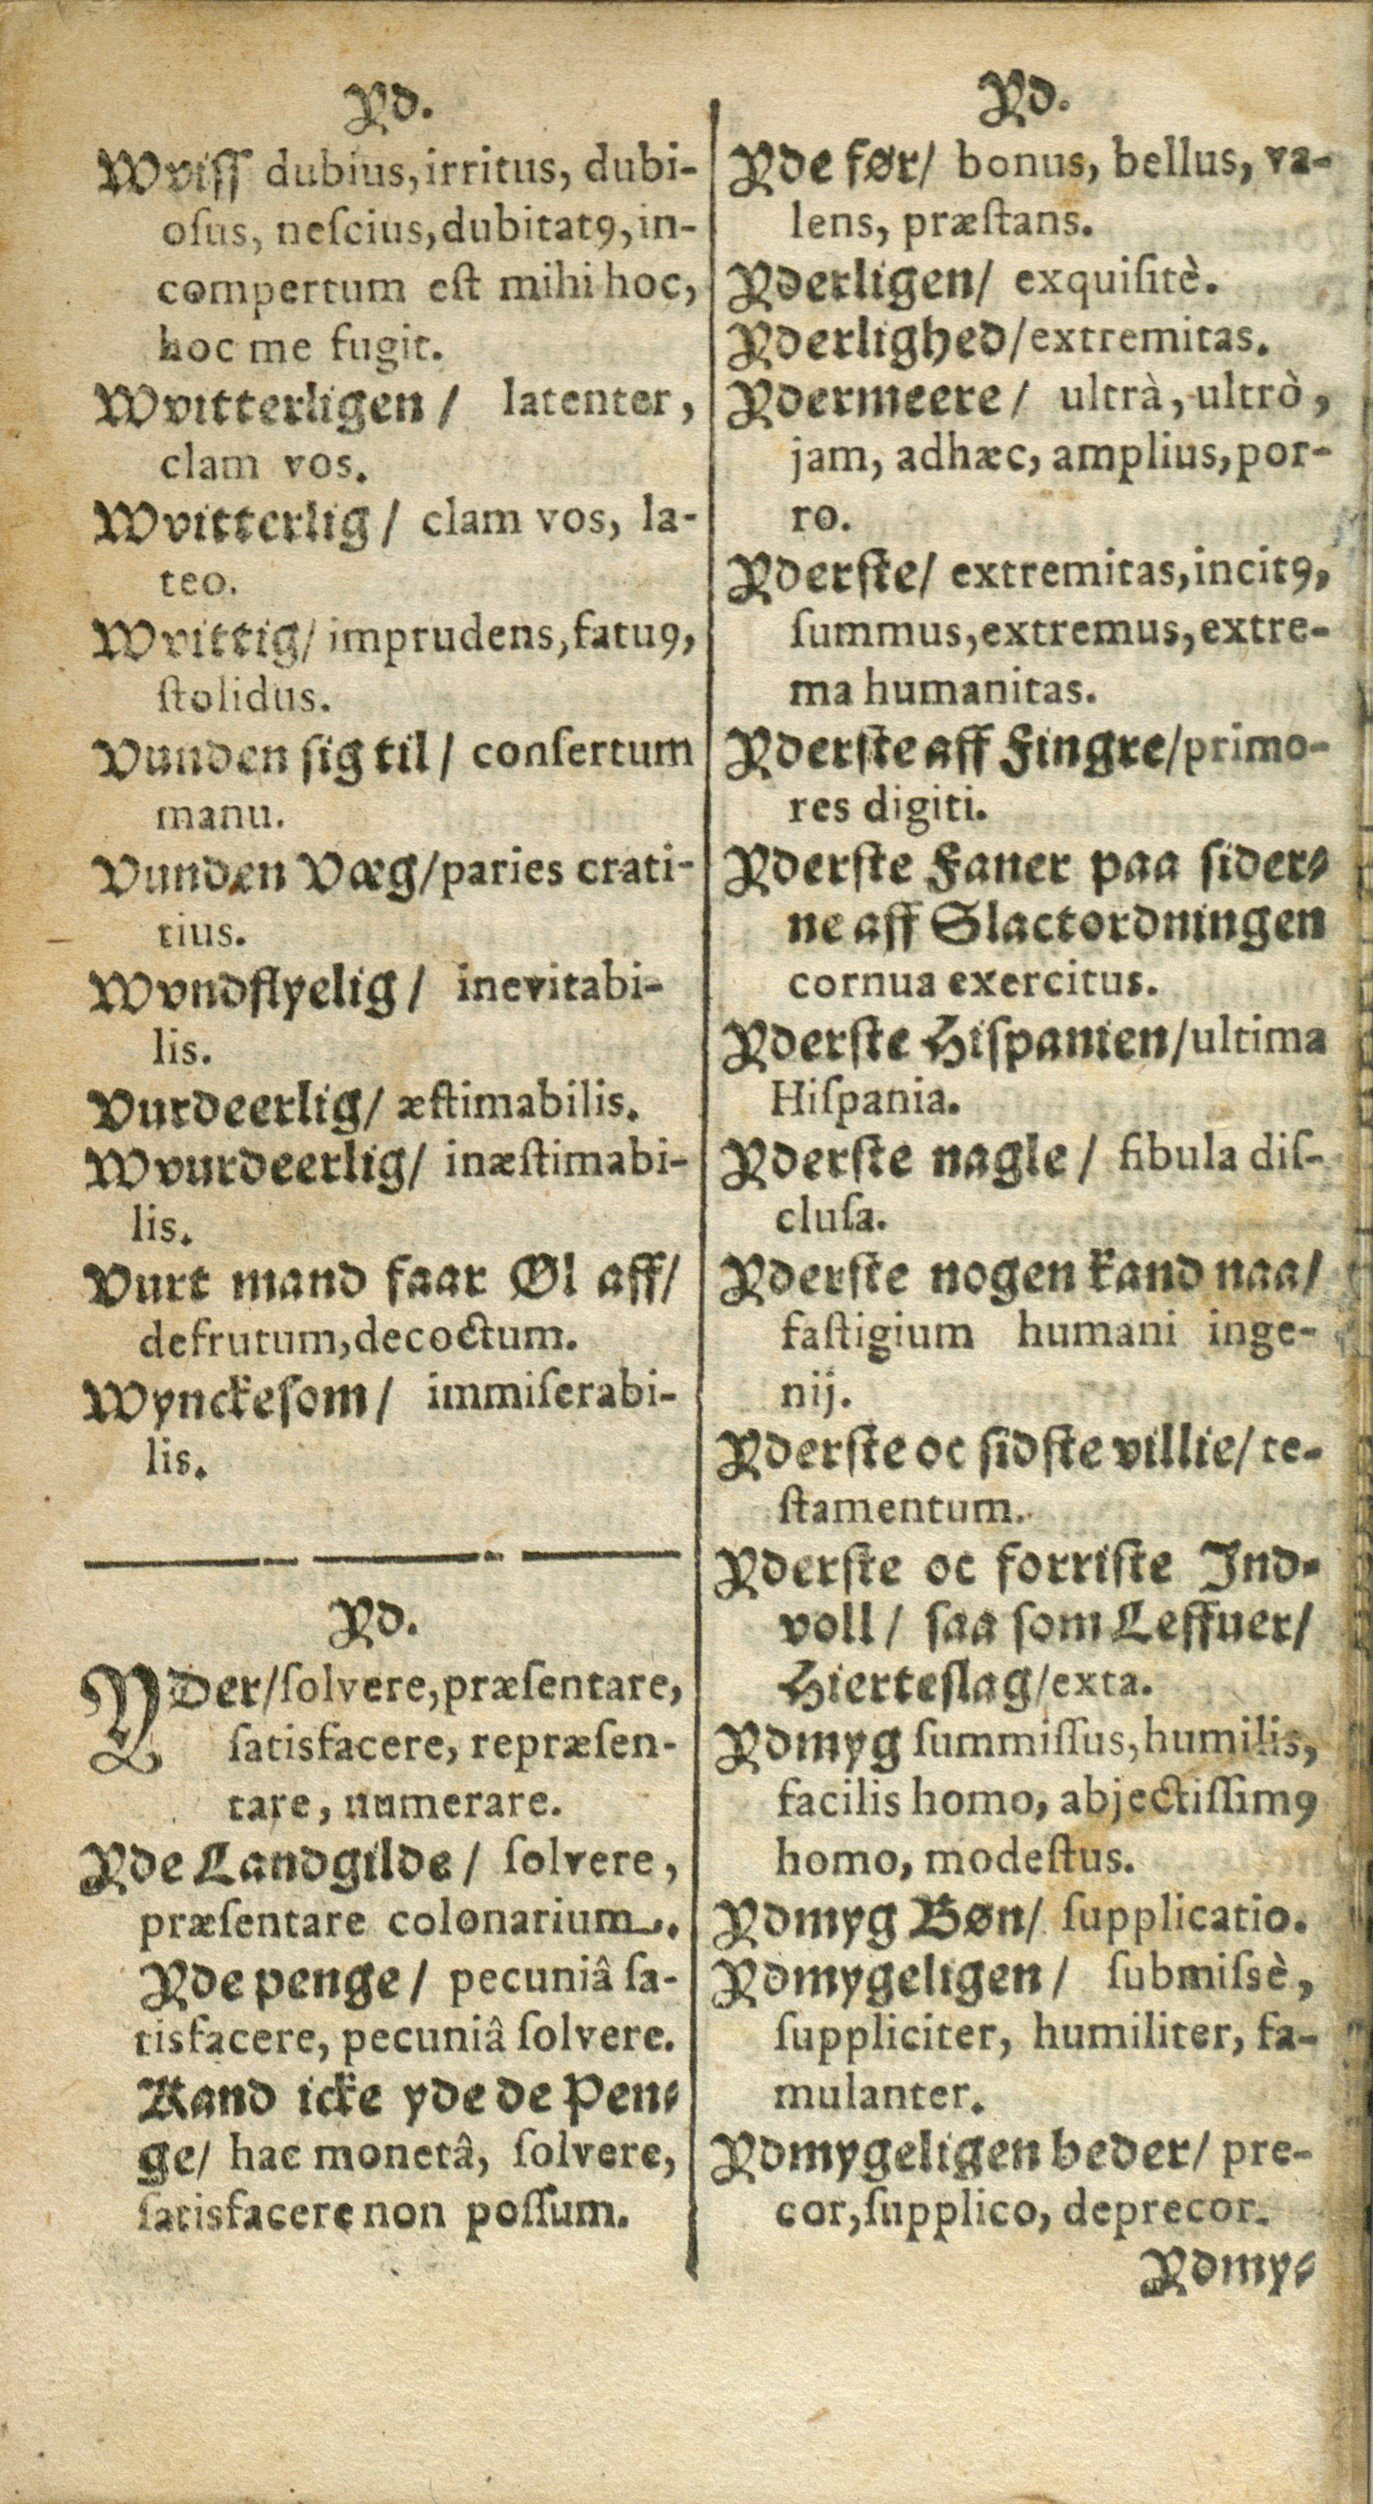 Yd.
Wviſſ dubius, irritus, dubi-
oſus, neſcius, dubitatꝯ, in-
compertum eſt mihi hoc,
hoc me fugit.
Wvitterligen / latenter,
clam vos.
Wvitterlig / clam vos, la-
teo.
Wvittig / imprudens, fatuꝯ,
ſtolidus.
Vunden ſig til / conſertum
manu.
Vunden Væg / paries crati-
tius.
Wvndflyelig / inevitabi-
lis.
Vurdeerlig / æſtimabilis.
Wvurdeerlig / inæſtimabi-
lis.
Vurt mand faar Øl aff /
defrutum, decoctum.
Wynckeſom / immiſerabi-
lis.
Yd.
YDer / ſolvere, præſentare,
ſatisfacere, repræſen-
tare, numerare.
Yde Landgilde / ſolvere,
præſentare colonarium.
Yde penge / pecuniâ ſa-
tisfacere, pecuniâ ſolvere.
Kand icke yde de Pen⸗
ge / hac monetâ, ſolvere,
ſatisfacere non poſſum.
Yd.
Yde før / bonus, bellus, va-
lens, præſtans.
Yderligen / exquiſitè.
Yderlighed / extremitas.
Ydermeere / ultrà, ultrò,
jam, adhæc, amplius, por-
ro.
Yderſte / extremitas, incitꝯ,
ſummus, extremus, extre-
ma humanitas.
Yderſte aff Fingre / primo-
res digiti.
Yderſte Faner paa ſider⸗
ne aff Slactordningen
cornua exercitus.
Yderſte Hiſpanien / ultima
Hiſpania.
Yderſte nagle / fibula diſ-
cluſa.
Yderſte nogen kand naa /
faſtigium humani inge-
nij.
Yderſte oc ſidſte villie / te-
ſtamentum.
Yderſte oc forriſte Ind-
voll / ſaa ſom Leffuer /
Hierteſlag / exta.
Ydmyg ſummiſſus, humilis,
facilis homo, abjectiſſimꝯ
homo, modeſtus.
Ydmyg Bøn / ſupplicatio.
Ydmygeligen / ſubmiſsè,
ſuppliciter, humiliter, fa-
mulanter.
Ydmygeligen beder / pre-
cor, ſupplico, deprecor.
Ydmy⸗